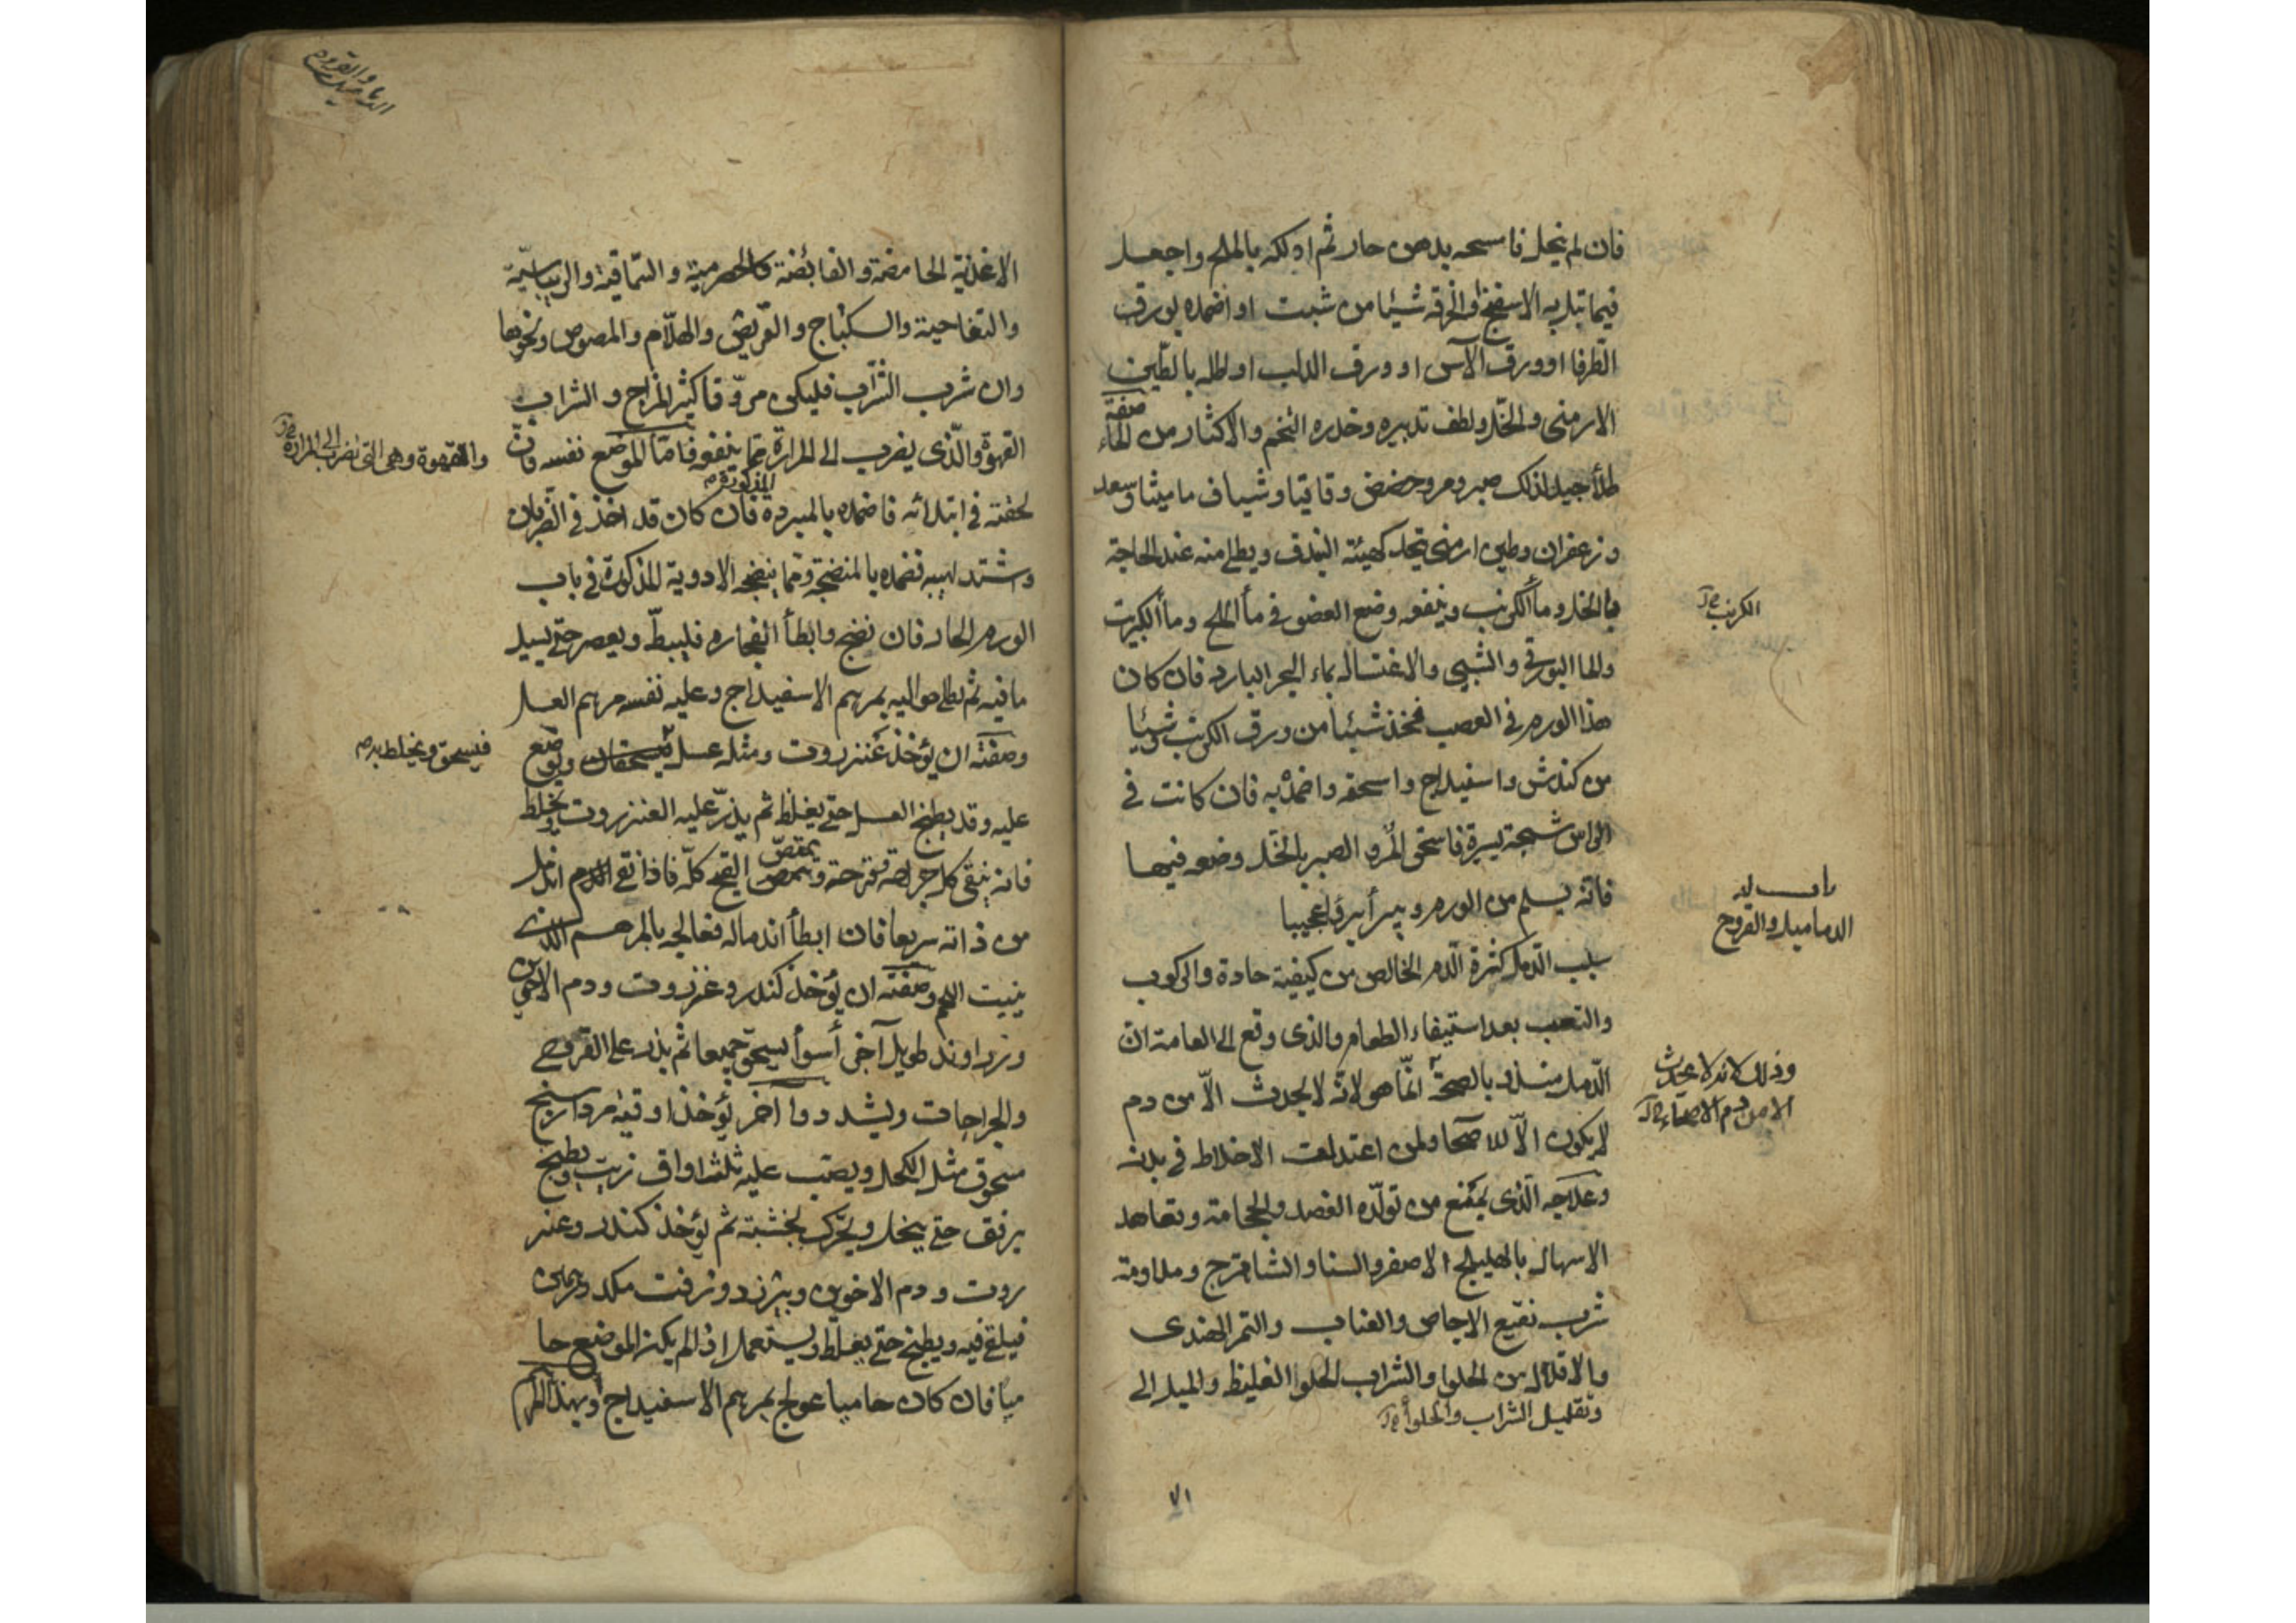 فان لم ينحل فامسحه بدهن حار ثم ادلكه بالملح واجعل
فيما تبل به الاسفنج او الخرقة شيئا من شبت او اضمده بورق
الطرفا او ورق الآس او ورق الدلب او اطله بالطين
الارمنى والخل ولطف تدبيره وحذره التخم والاكثار من الماء
صفة
طلأ جيد لذلك صبر ومر وحضض وقاقيا وشياف ماميثا وسعد
وزعفران وطين ارمنى تجعل كهيئة البندق ويطلى منه عند الحاجة
بالخل ومأ الكرنب وينفعه وضع العضو فى مأ الملح ومأ الكبريت
الكرنب
والما البورقى والشبى والاغتسال بماء البحر البارد فان كان
هذا الورم فى العصب فخذ شيئا من ورق الكرنب وشيئا
من كندش واسفيداج واسحقه واضمد به فان كانت فى
الراس شجة يسيرة فاسحق المر والصبر بالخل وضعه فيها
فانه يسلم من الورم ويبرأ برءا عجيبا
باب فى
الدماميل والقروح
سبب الدمل كثرة الدم الخالص من كيفية حادة والركوب
والتعب بعد استيفاء الطعام والذى وقع الى العامة ان
الدمل منذر بالصحة انما هو لانه لا يحدث الا من دم
وذلك لانه لا يحدث
الا من دم الاصحاء
لا يكون الا للاصحا ولمن اعتدلت الاخلاط فى بدنه
وعلاجه الذى يمنع من تولده الفصد والحجامة وتعاهد
الاسهال بالهليلج الاصفر والسنا والشاهترج ومداومة
شرب نقيع الاجاص والعناب والتمر الهندى
والاقلال من الحلوا والشراب الحلو الغليظ والميل الى
وتقليل الشراب والحلوأ
٧١
الدماميل والقروح
الاغذية الحامضة والقابضة كالحصرمية والسماقية والريباسية
والتفاحية والسكباج والقريص والهلام والمصوص ونحوها
وان شرب الشراب فليكن مروقا كثير المزاج والشراب
القهوة والذى يضرب الى المرارة مما ينفعه فاما الموضع نفسه فان
والقهوة وهى التى تضرب الى المرارة
لحقته فى ابتدائه فاضمده بالمبردة فان كان قد اخذ فى الضربان
المذكورة
وشتد لهيبه فضمده بالمنضجة ومما ينضجه الادوية المذكورة فى باب
الورم الحار فان نضج وابطأ انفجاره فليبط ويعصر حتى يسيل
ما فيه ثم يطلى حواليه بمرهم الاسفيداج وعليه نفسه مرهم العسل
وصفته ان يؤخذ عنزروت ومثله عسل فيسحقان ويوضع
فيسحق ويخلط به
عليه وقد يطبخ العسل حتى يغلظ ثم يذر عليه العنزروت ويخلط
فانه ينقى كل جراحة وقرحة ويمص القيح كله فاذا نقى الدم اندمل
من ذاته سريعا فان ابطأ اندماله فعالجه بالمرهم الذى
ينبت اللحم وصفته ان يؤخذ كندر وعنزروت ودم الاخوين
وزراوند طويل آخى أسوأ يسحق جميعا ثم يذر على القروح
والجراحات ويشد دوا اخر يؤخذ اوقية مرداسنج
مسحوق مثل الكحل ويصب عليه ثلث اواق زيت ويطبخ
برفق حتى ينحل ويحرك بخشبة ثم يؤخذ كندر وعنز
روت ودم الاخوين وبيرزد وزفت مكد درهمين
فيلقى فيه ويطبخ حتى يغلظ ويستعمل اذا لم يكن الموضع حا
ميا فان كان حاميا عولج بمرهم الاسفيداج أو بهذا المرهم